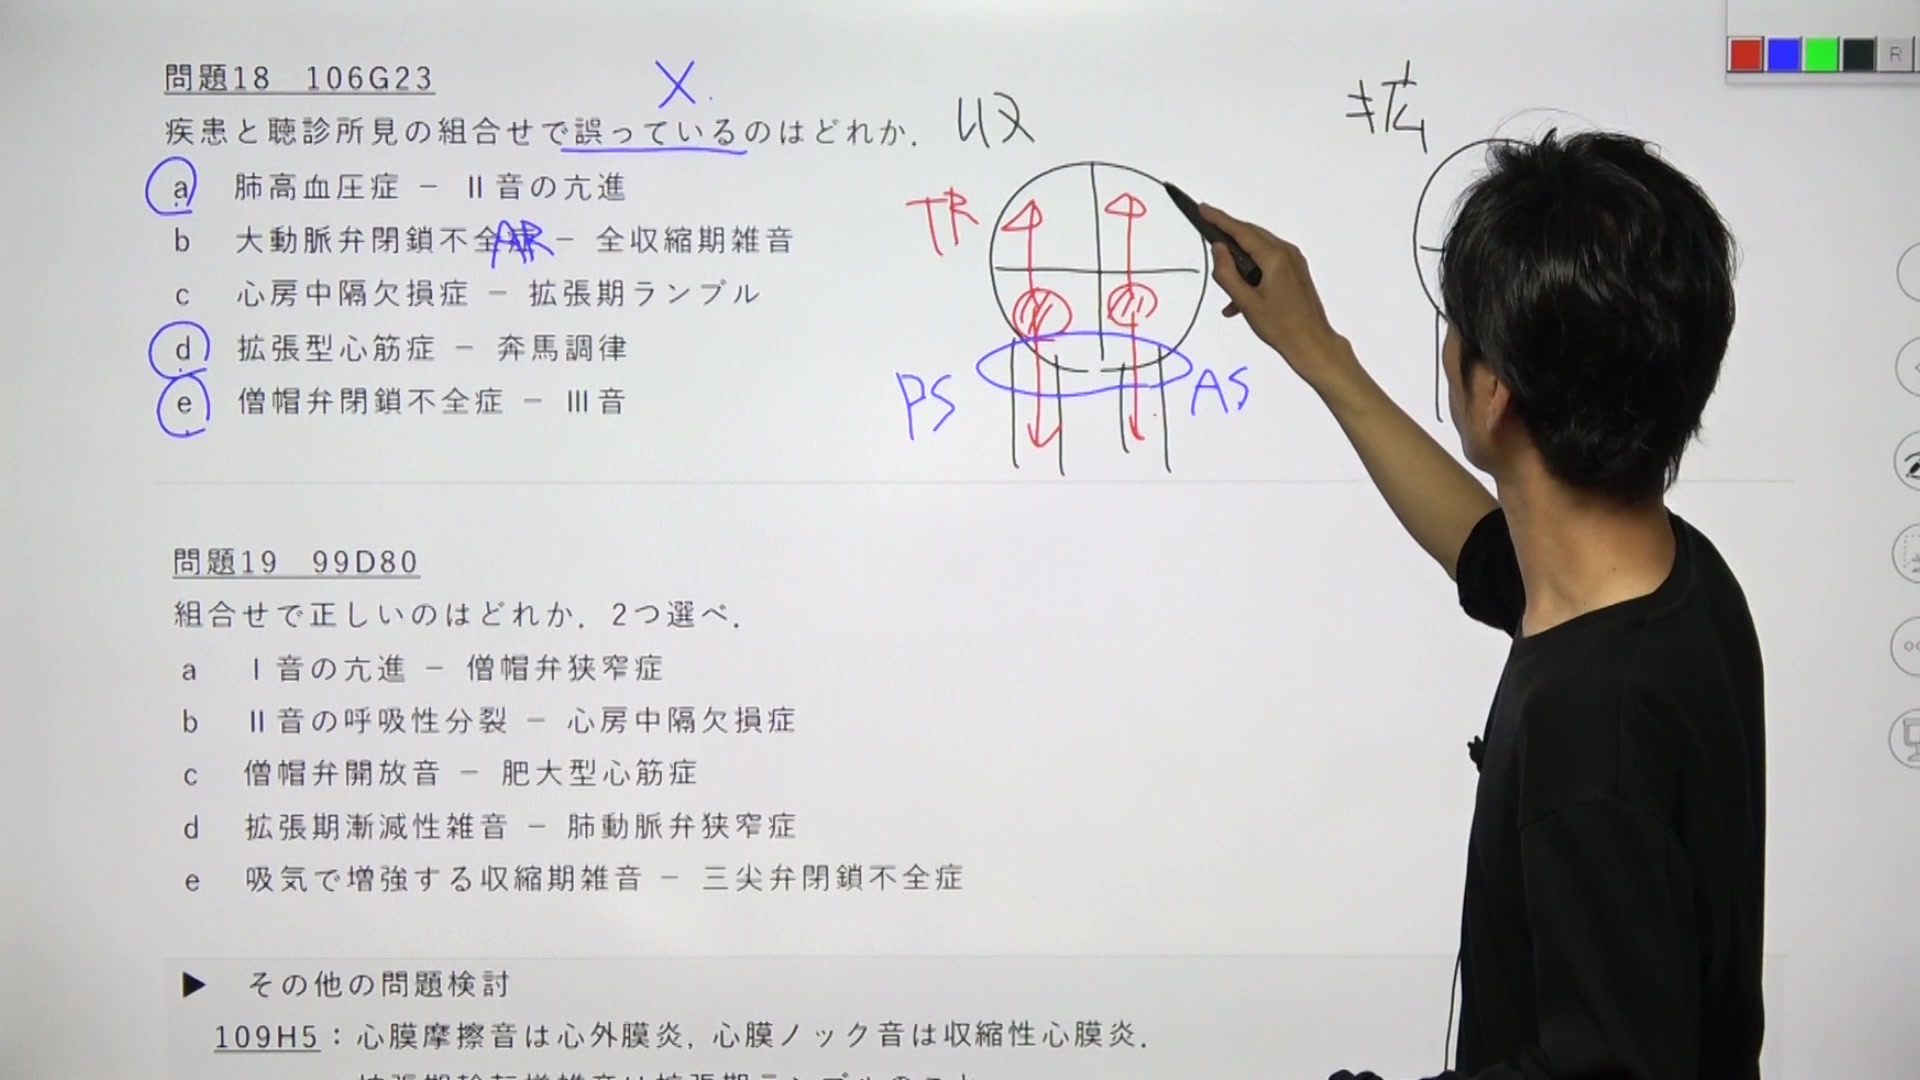 問題18 106G23
X.
疾患と聴診所見の組合せで誤っているのはどれか．
a 肺高血圧症 － Ⅱ音の亢進
b 大動脈弁閉鎖不全 － 全収縮期雑音
AR
c 心房中隔欠損症 － 拡張期ランブル
d 拡張型心筋症 － 奔馬調律
e 僧帽弁閉鎖不全症 － Ⅲ音
収
拡
TR
PS
AS
R
問題19 99D80
組合せで正しいのはどれか．2つ選べ．
a Ⅰ音の亢進 － 僧帽弁狭窄症
b Ⅱ音の呼吸性分裂 － 心房中隔欠損症
c 僧帽弁開放音 － 肥大型心筋症
d 拡張期漸減性雑音 － 肺動脈弁狭窄症
e 吸気で増強する収縮期雑音 － 三尖弁閉鎖不全症
▶ その他の問題検討
109H5：心膜摩擦音は心外膜炎，心膜ノック音は収縮性心膜炎．